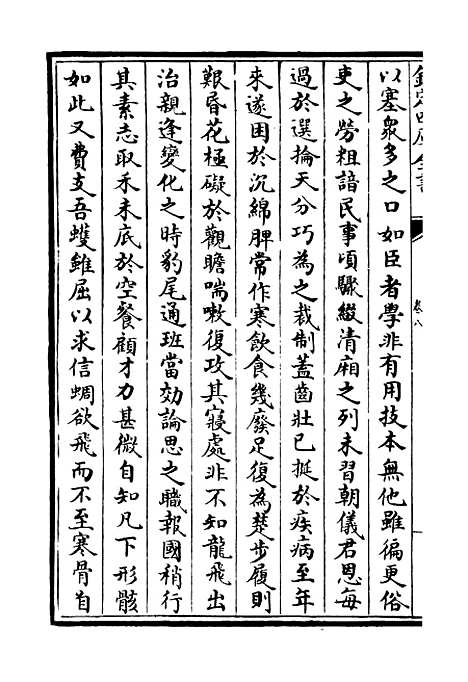 欽定四庫全書
卷八
以塞衆多之口如臣者學非有用技本無他雖徧更俗
吏之勞粗諳民事頃驟綴清廂之列未習朝儀君恩每
過於選掄天分巧為之裁制蓋齒壯已挺於疾病至年
來遂困於沉綿脾常作寒飲食幾廢足復為楚步履則
艱昏花極礙於觀瞻喘嗽復攻其寢處非不知龍飛出
治親逢變化之時豹尾通班當効論思之職報國稍行
其素志取禾未底於空餐顧才力甚微自知凡下形骸
如此又費支吾蠖雖屈以求信蜩欲飛而不至寒骨自